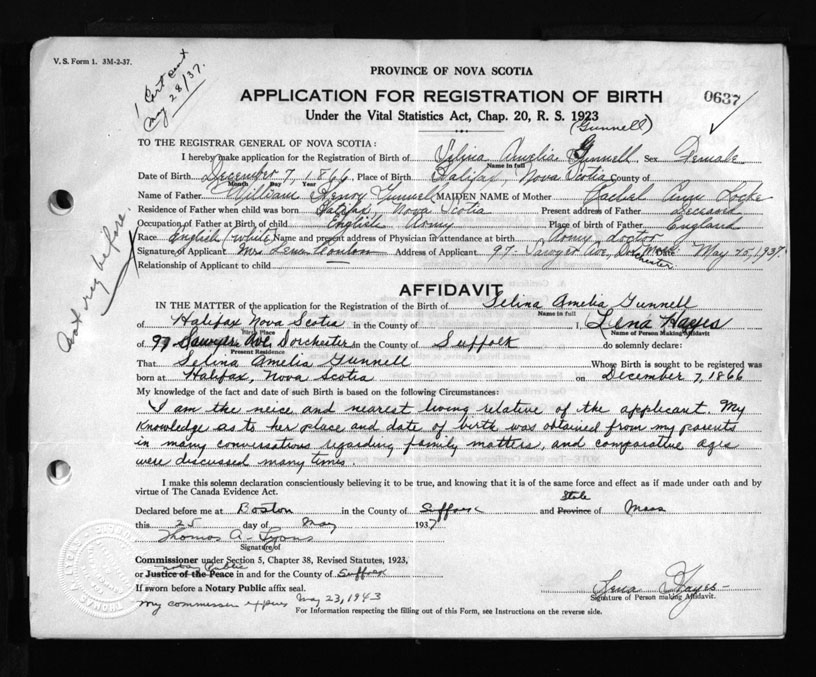 V. S. Form 1. 3M-2-37.
1 Cert sent
May 28/37.
PROVINCE OF NOVA SCOTIA
APPLICATION FOR REGISTRATION OF BIRTH
0637
Under the Vital Statistics Act, Chap. 20, R. S. 1923
(Gunnell)
TO THE REGISTRAR GENERAL OF NOVA SCOTIA:
I hereby make application for the Registration of Birth of Selina Amelia Gunnell, Sex Female
Name in full
Date of Birth December 7, 1866, Place of Birth Halifax, Nova Scotia County of
Month Day Year
Name of Father William Henry Gunnell MAIDEN NAME of Mother Rachel Ann Locke
Residence of Father when child was born Halifax, Nova Scotia Present address of Father deceased
Occupation of Father at Birth of child English Army Place of birth of Father England
Race English/white Name and present address of Physician in attendance at birth Army doctor
Signature of Applicant Mrs Lena Address of Applicant 97 Sawyer Ave, Dorchester Mass Date May 25, 1937.
Relationship of Applicant to child
not reg before.
AFFIDAVIT
IN THE MATTER of the application for the Registration of the Birth of Selina Amelia Gunnell
Name in full
of Halifax Nova Scotia in the County of I, Lena Hayes
Birth Place Name of Person Making Affidavit
of 97 Sawyer Ave, Dorchester, in the County of Suffolk do solemnly declare:
Present Residence
That Selina Amelia Gunnell Whose Birth is sought to be registered was
born at Halifax, Nova Scotia on December 7, 1866
My knowledge of the fact and date of such Birth is based on the following Circumstances:
I am the neice and nearest living relative of the applicant. My
knowledge as to her place and date of birth was obtained from my parents
in many conversations regarding family matters, and comparative ages
were discussed many times.
I make this solemn declaration conscientiously believing it to be true, and knowing that it is of the same force and effect as if made under oath and by
virtue of The Canada Evidence Act.
State
Declared before me at Boston in the County of Suffolk and Province of Mass
this 25 day of May 1937
Thomas A. Lyons
Signature of
Commissioner under Section 5, Chapter 38, Revised Statutes, 1923,
Notary Public
or Justice of the Peace in and for the County of Suffolk
If sworn before a Notary Public affix seal.
Lena Hayes
Signature of Person making Affidavit.
My commission expires May 23, 1943
For Information respecting the filling out of this Form, see Instructions on the reverse side.